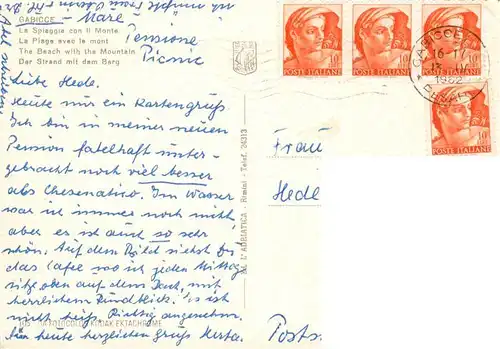 GABICCE - Mare
La Spiaggia con il Monte Pensione
La Plage avec le mont
The Beach with the Mountain Picnic
Der Strand mit dem Berg
Liebe Hede.
Heute nur ein Kartengruß
Ich bin in meiner neuen
Pension fabelhaft unter-
gebracht noch viel besser
als Chesenatico. Im Wasser
war ich immer noch nicht,
aber es ist auch so sehr
schön. Auf dem Bild siehst Du
das Cafe wo ich jeden Mittag
sitze oben auf dem Dach, mit
herrlichem Rundblick. Es ist
nicht heiß. Richtig angenehm.
Für heute herzlichen Gruß Herta.
FOTOCOLOR KODAK EKTACHROME
L'ADRIATICA - Rimini - Telef. 24313
POSTE ITALIANE 10
POSTE ITALIANE 10
POSTE ITALIANE 10
POSTE ITALIANE 10
GABICCE
16-17
1962
Frau
Hede
Posts